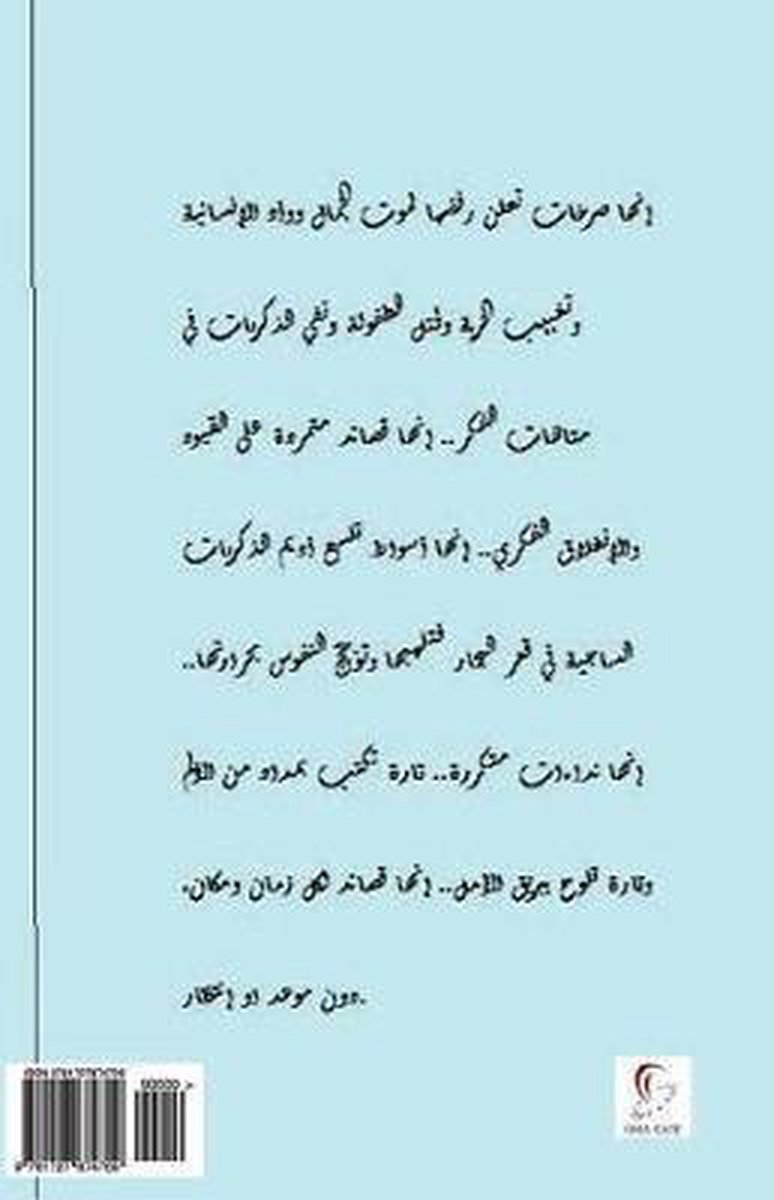 إنها صرخات تعلن رفضها لموت الجمال ووأد الإنسانية
وتغييب الحرية وقتل الطفولة ونفي الذكريات في
متاهات الفكر.. إنها قصائد متمردة على القيود
والإنغلاق الفكري.. إنها أسواط تلسع أديم الذكريات
الساجية في قعر البحار فتلهبها وتؤجج النفوس بحرارتها..
إنها نداءات متكررة.. تارة تكتب بمداد من الألم
وتارة تلوح ببريق الأمل.. إنها قصائد لكل زمان ومكان،
دون موعد او إنتظار.
90000 >